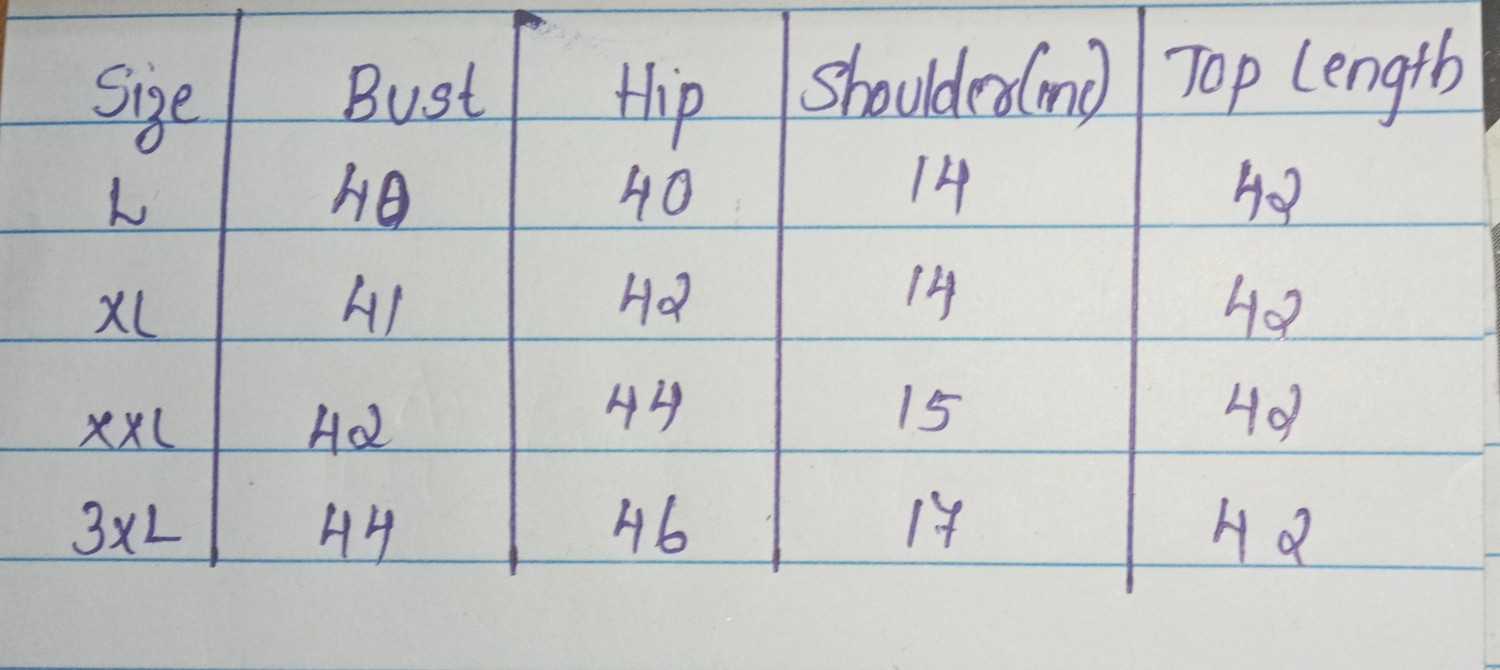 Size Bust Hip Shoulder(inc) Top Length
L 40 40 14 42
XL 41 42 14 42
XXL 42 44 15 42
3XL 44 46 17 42